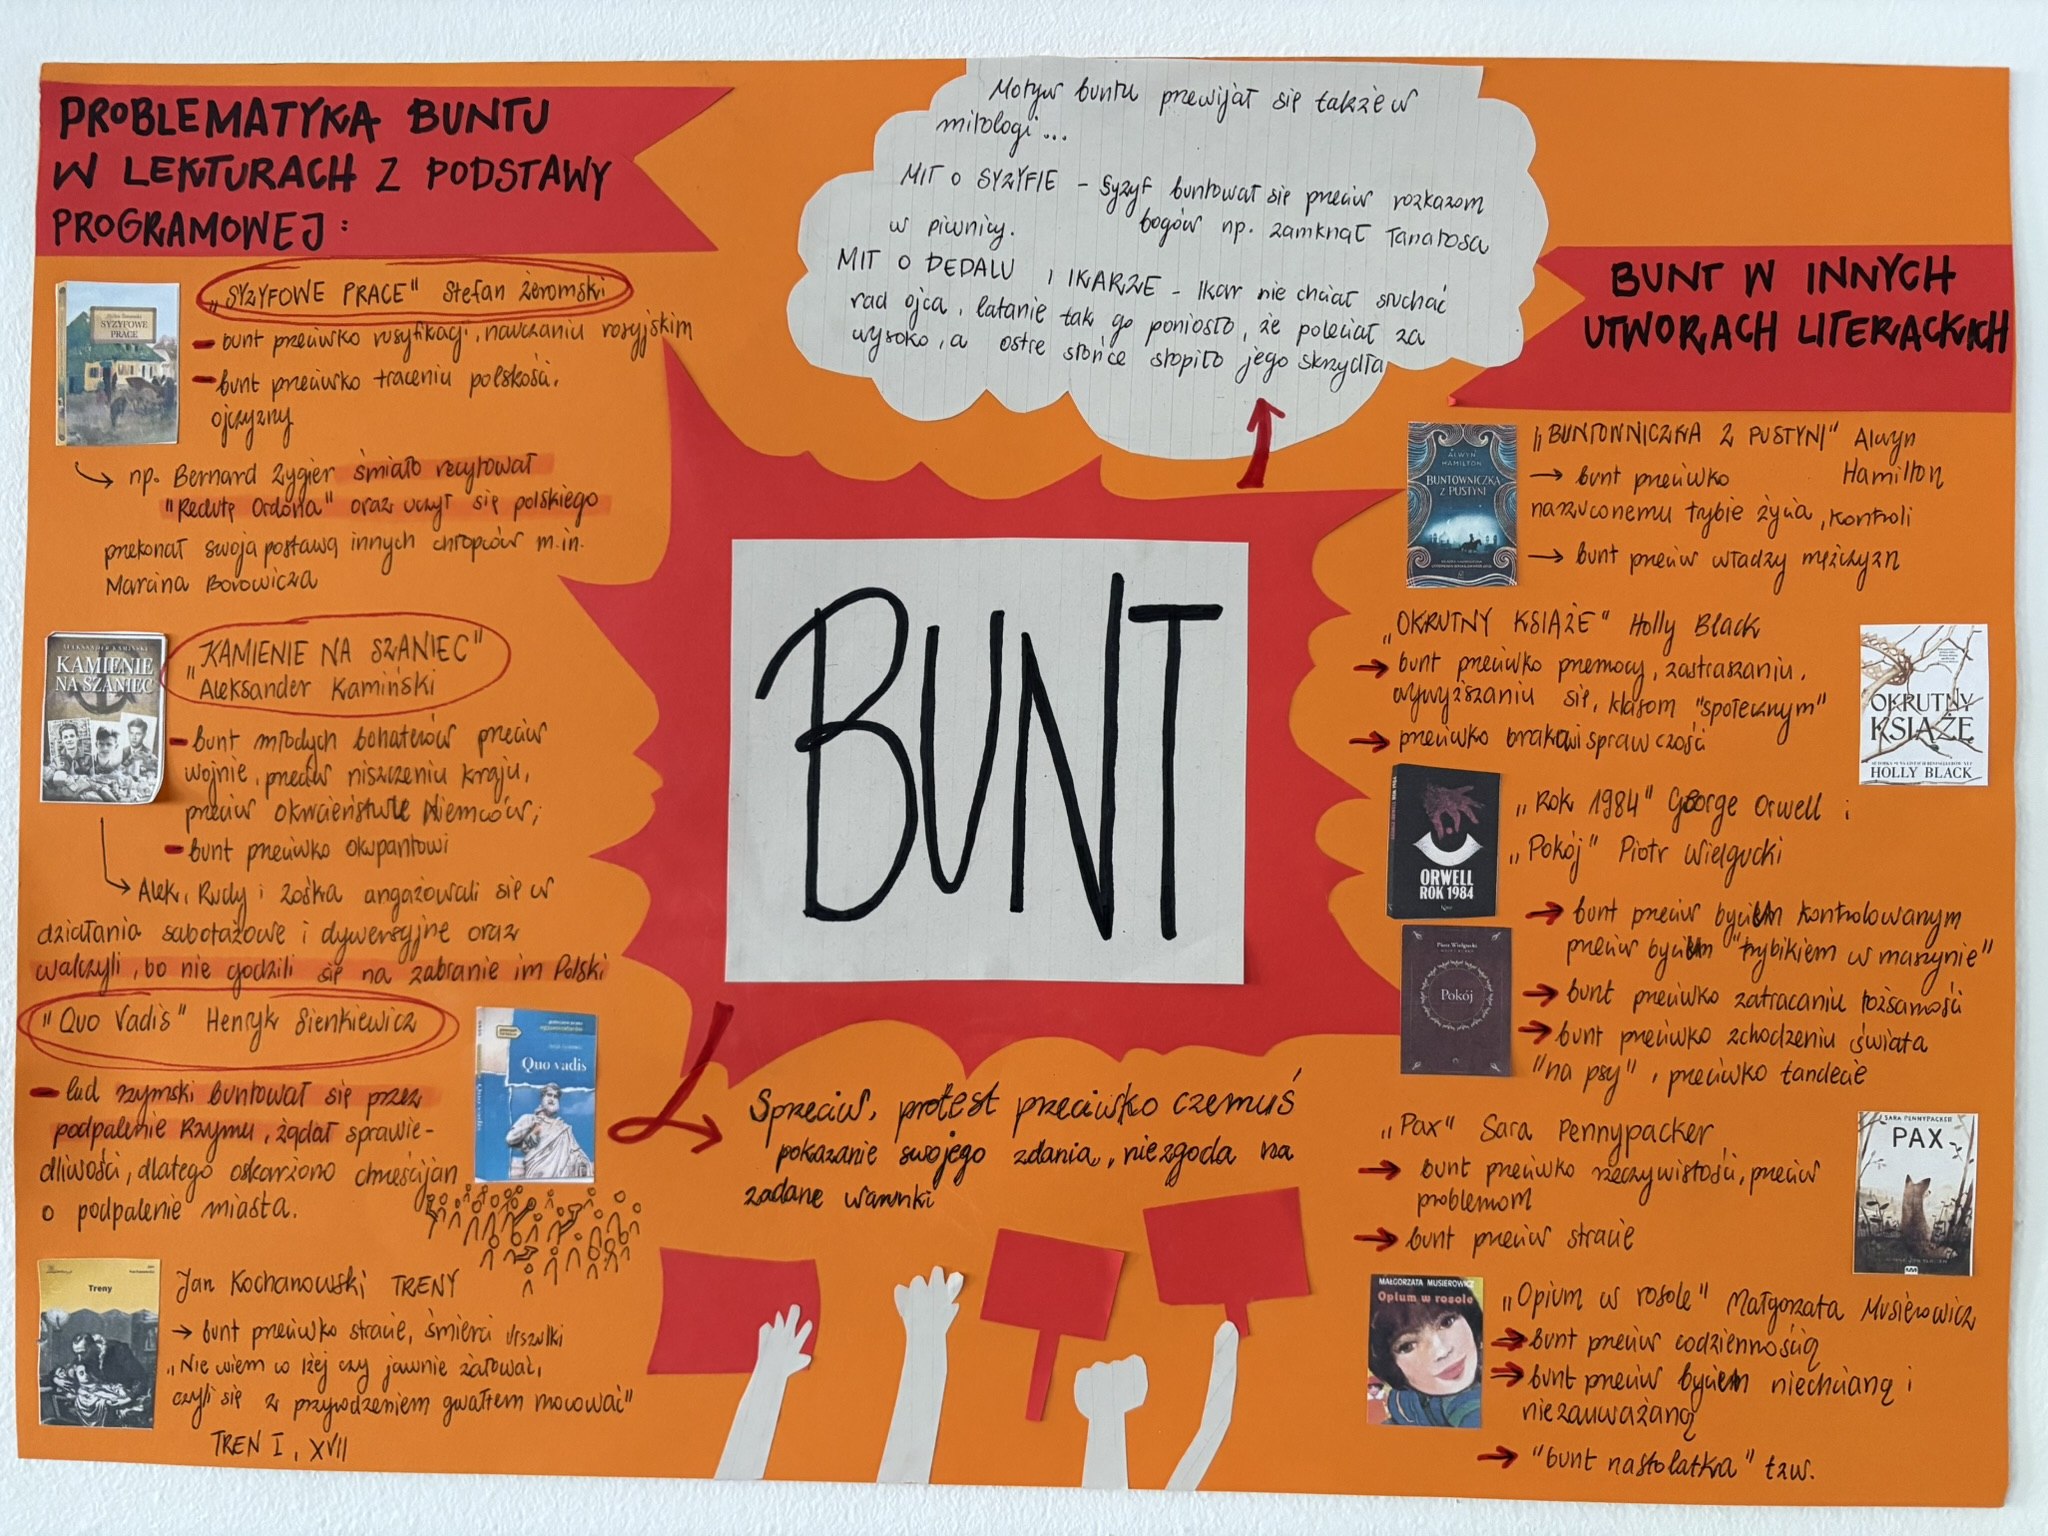 PROBLEMATYKA BUNTU
W LEKTURACH Z PODSTAWY
PROGRAMOWEJ:
SYZYFOWE
PRACE
„SYZYFOWE PRACE" Stefan Żeromski
- bunt przeciwko rusyfikacji, nauczaniu rosyjskim
- bunt przeciwko traceniu polskości,
ojczyzny
np. Bernard Zygier śmiało recytował
"Redutę Ordona" oraz uczył się polskiego
przekonał swoją postawą innych chłopców m.in.
Marcina Borowicza
ALEKSANDER KAMIŃSKI
KAMIENIE
NA SZANIEC
„KAMIENIE NA SZANIEC"
Aleksander Kamiński
- bunt młodych bohaterów przeciw
wojnie, przeciw niszczeniu kraju,
przeciw okrucieństwu Niemców;
- bunt przeciwko okupantowi
Alek, Rudy i Zośka angażowali się w
działania sabotażowe i dywersyjne oraz
walczyli, bo nie godzili się na zabranie im Polski
„Quo Vadis" Henryk Sienkiewicz
Quo vadis
- lud rzymski buntował się przez
podpalenie Rzymu, żądał sprawie-
dliwości, dlatego oskarżono chrześcijan
o podpalenie miasta.
Treny
Jan Kochanowski TRENY
→ bunt przeciwko stracie, śmierci Urszulki
„Nie wiem co lżej czy jawnie żałować,
czyli się z przyrodzeniem gwałtem mocować"
TREN I, XVII
Motyw buntu przewijał się także w
mitologi...
MIT O SYZYFIE - Syzyf buntował się przeciw rozkazom
bogów np. zamknął Tanatosa
w piwnicy.
MIT O DEDALU I IKARZE - Ikar nie chciał słuchać
rad ojca, latanie tak go poniosło, że poleciał za
wysoko, a ostre słońce stopiło jego skrzydła
BUNT
Sprzeciw, protest przeciwko czemuś
pokazanie swojego zdania, niezgoda na
zadane warunki
BUNT W INNYCH
UTWORACH LITERACKICH
ALWYN
HAMILTON
BUNTOWNICZKA
Z PUSTYNI
„BUNTOWNICZKA Z PUSTYNI" Alwyn
Hamilton
→ bunt przeciwko
narzuconemu trybie życia, kontroli
→ bunt przeciw władzy mężczyzn
„OKRUTNY KSIĄŻE" Holly Black
→ bunt przeciwko przemocy, zastraszaniu,
wywyższaniu się, klasom "społecznym"
→ przeciwko brakowi sprawczości
OKRUTNY
KSIĄŻĘ
HOLLY BLACK
ORWELL
ROK 1984
„Rok 1984" George Orwell i
„Pokój" Piotr Wielgucki
Piotr Wielgucki
Pokój
→ bunt przeciw byciem kontrolowanym
przeciw byciem "trybikiem w maszynie"
→ bunt przeciwko zatracaniu tożsamości
→ bunt przeciwko zchodzeniu świata
"na psy", przeciwko tandecie
„Pax" Sara Pennypacker
→ bunt przeciwko rzeczywistości, przeciw
problemom
→ bunt przeciw stracie
SARA PENNYPACKER
PAX
MAŁGORZATA MUSIEROWICZ
Opium w rosole
„Opium w rosole" Małgorzata Musierowicz
→ bunt przeciw codziennością
→ bunt przeciw byciem niechcianą i
niezauważaną
→ "bunt nastolatka" tzw.